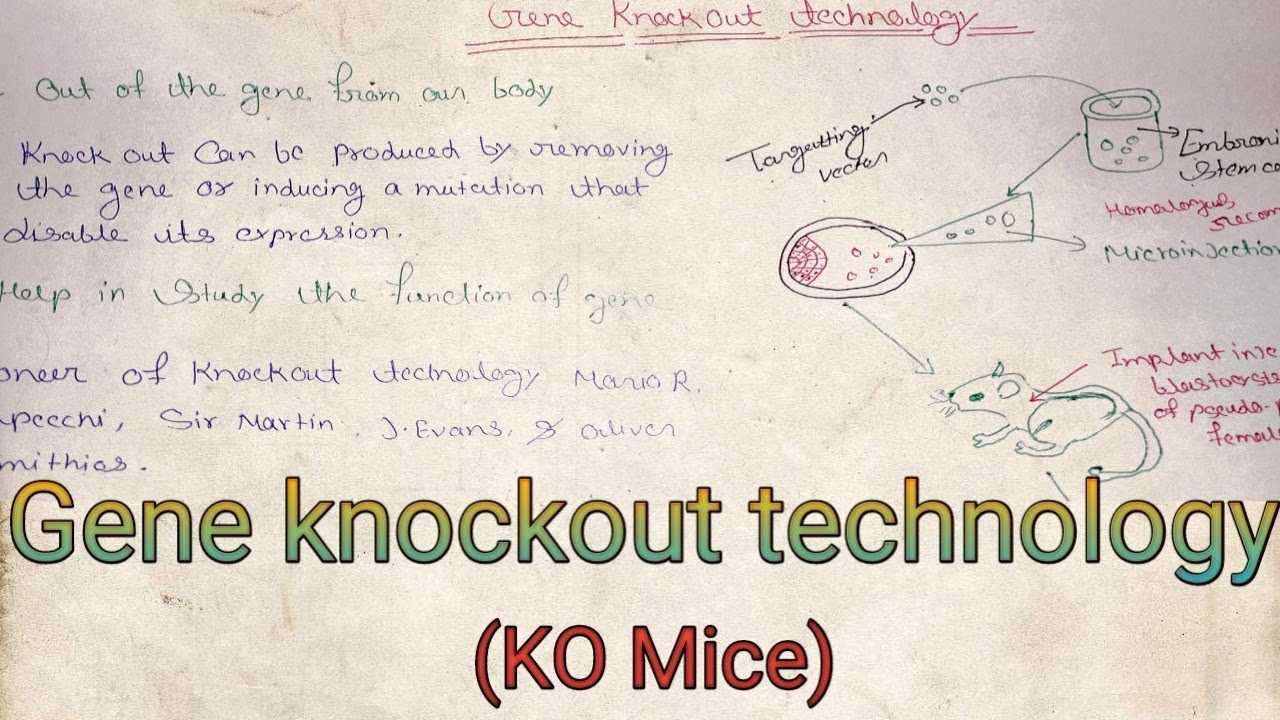 Gene Knockout technology
- Out of the gene from our body
Knock out Can be produced by removing
the gene or inducing a mutation that
disable its expression.
Help in Study the function of gene
oneer of Knockout technology Mario R.
pecchi, Sir Martin, J. Evans, & oliver
mithias.
Tangeutting
vector
Embroni
Stem ce
Homalogus
recom
Microinjection
Implant inje
blastocrste
of pseudo-p
femal
Gene knockout technology
(KO Mice)